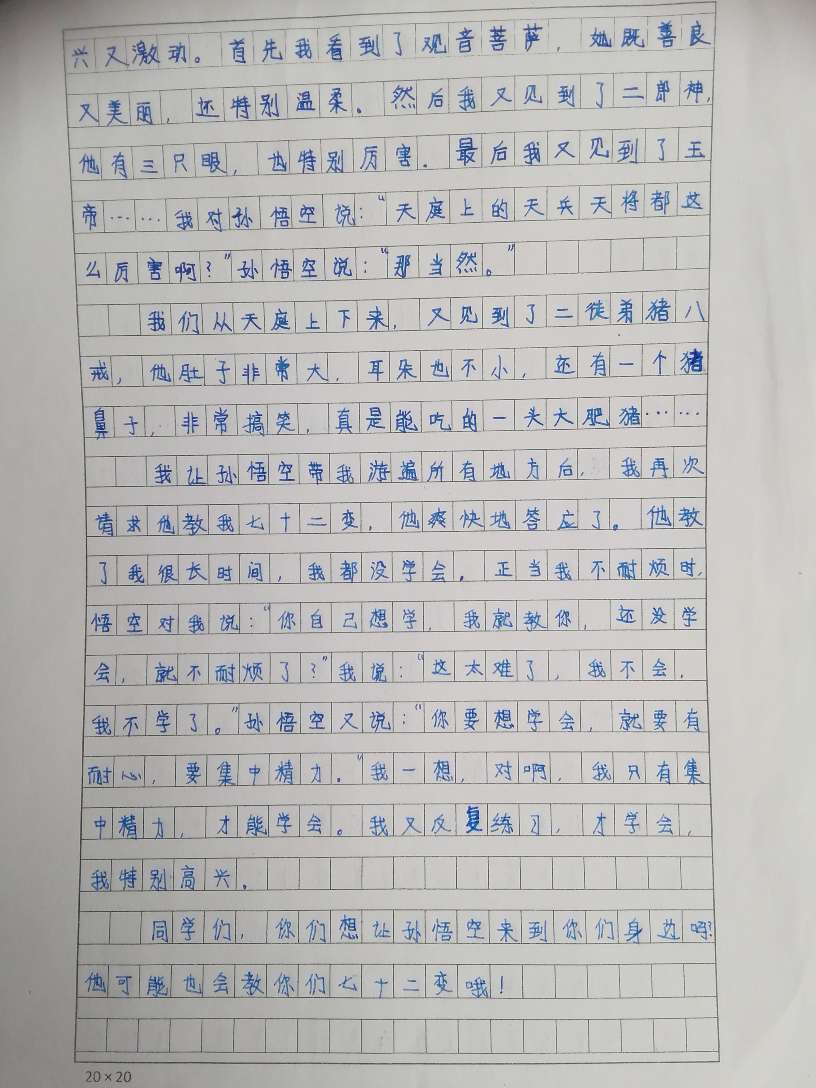 兴又激动。首先我看到了观音菩萨，她既善良
又美丽，还特别温柔。然后我又见到了二郎神，
他有三只眼，也特别厉害。最后我又见到了玉
帝……我对孙悟空说：“天庭上的天兵天将都这
么厉害啊？”孙悟空说：“那当然。”
我们从天庭上下来，又见到了二徒弟猪八
戒，他肚子非常大，耳朵也不小，还有一个猪
鼻子，非常搞笑，真是能吃的一头大肥猪……
我让孙悟空带我游遍所有地方后，我再次
请求他教我七十二变，他爽快地答应了。他教
了我很长时间，我都没学会。正当我不耐烦时，
悟空对我说：“你自己想学，我就教你，还没学
会，就不耐烦了？”我说：“这太难了，我不会，
我不学了。”孙悟空又说：“你要想学会，就要有
耐心，要集中精力。”我一想，对啊，我只有集
中精力，才能学会。我又反复练习，才学会，
我特别高兴。
同学们，你们想让孙悟空来到你们身边吗？
他可能也会教你们七十二变哦！
20×20